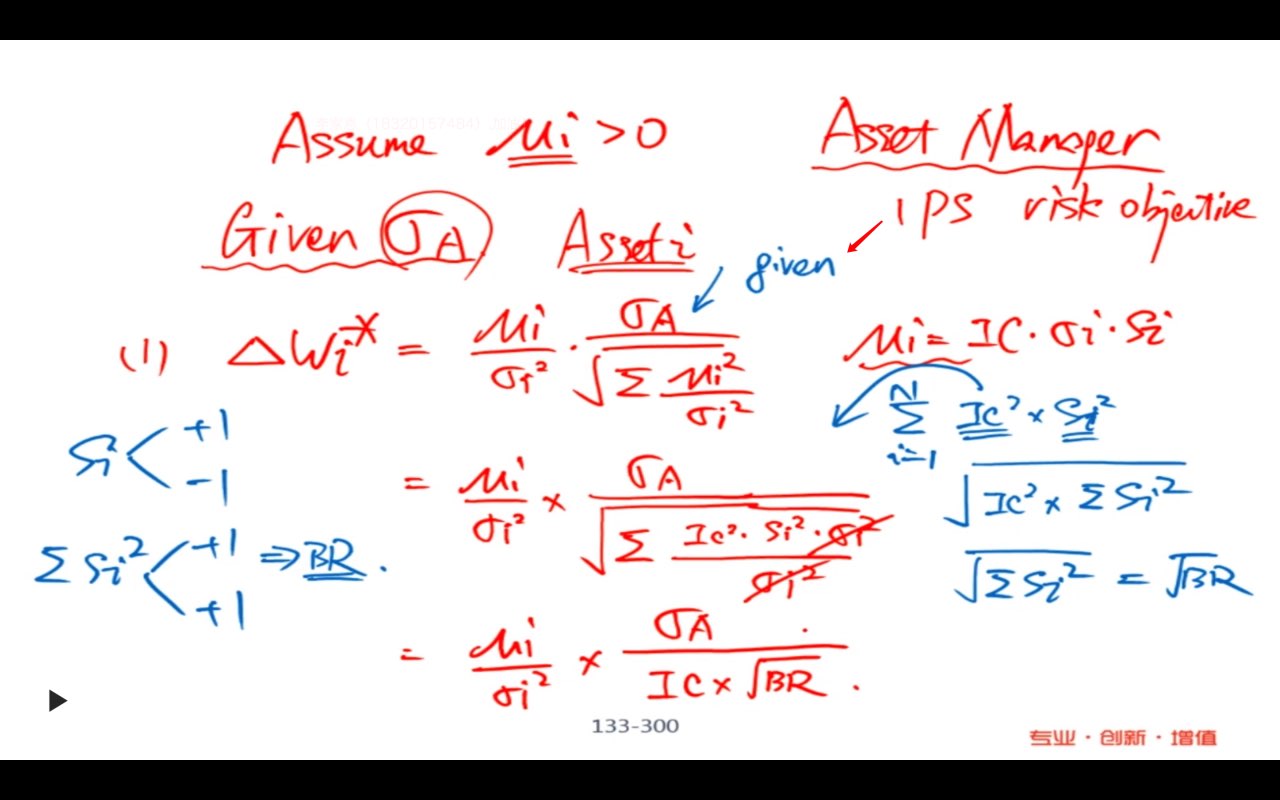 Assume μi > 0
Asset Manager
IPS risk objective
Given σA Asset i
given
(1) ΔWi* = μi/σi² · σA/√(Σ μi²/σi²)
μi = IC · σi · Si
Si < +1 -1
Σ Si² < +1 +1 ⇒ BR.
= μi/σi² × σA/√(Σ IC² · Si² · σi²/σi²)
N Σ i=1 IC² × Si²
√(IC² × Σ Si²)
√(Σ Si²) = √BR
= μi/σi² × σA/(IC × √BR).
133-300
专业·创新·增值